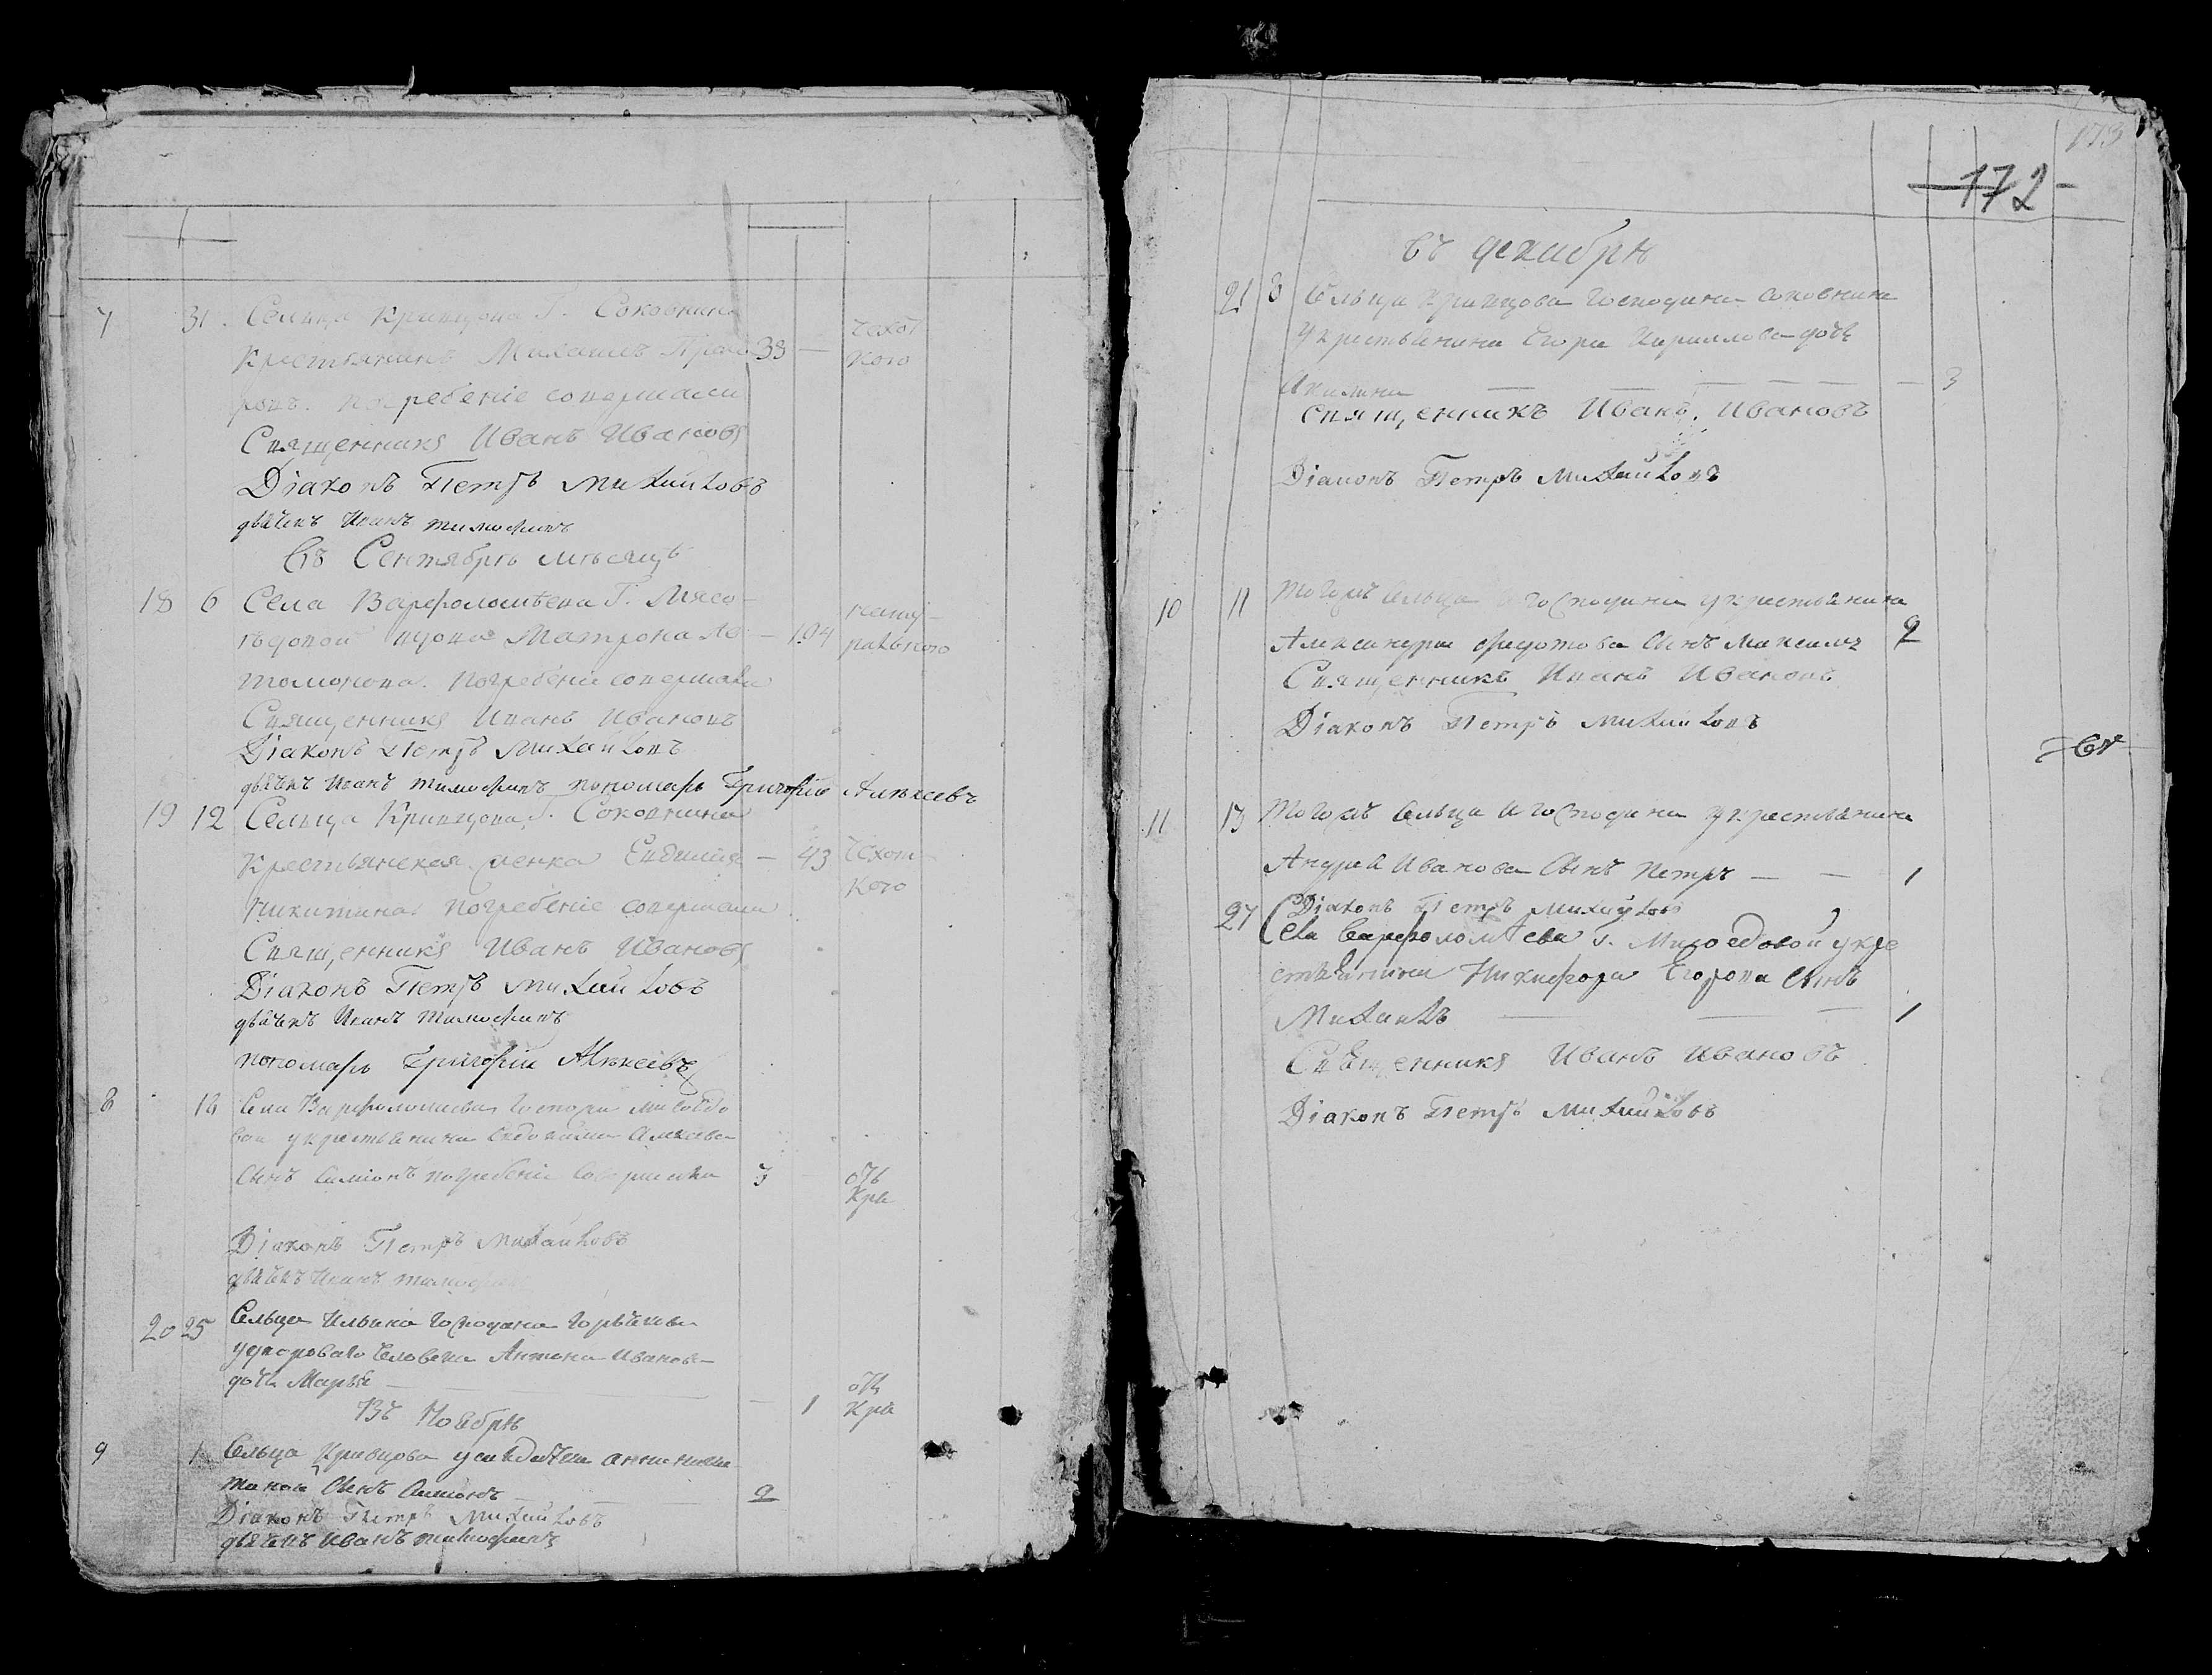 7 31. Сельца Кривцова Г. Соковнина
Крестьянинъ Михаилъ Прохо 33 — чахот
ровъ. погребеніе совершали кого
Священникъ Иванъ Ивановъ
Діаконъ Петръ Михайловъ
дьячекъ Иванъ тимофеивъ
Въ Сентябрѣ мѣсяцѣ
18 6 Села Варфоломѣева Г. Мясо- нату-
ѣдовой вдова Матрона Ав — 104 ральною
тамонова. погребеніе совершали
Священникъ Иванъ Ивановъ
Діаконъ Петръ Михайловъ
дьячекъ Иванъ тимофеивъ пономарь Григорій Алѣксевъ
19 12 Сельца Кривцова Г. Соковнина
Крестьянская женка — 43 чахот
Никитина погребеніе совершали кого
Священникъ Иванъ Ивановъ
Діаконъ Петръ Михайловъ
дьячекъ Иванъ тимофеивъ
пономарь Григорій Алѣксевъ
8 18 Села Варфоломиева Госпожи мясоедо
вой укрестьянина Евдокима Алексева
Сынъ Симіонъ погребеніе Совершили 3
Діаконъ Петръ Михайловъ
дьячекъ Иванъ
20 25 Сельца Ильина Господина
удвороваго Человека Антона Иванова
дочь Марья — 1
Въ Ноябрѣ
9 Сельца Кривцова
Сынъ Симіонъ 2
Діаконъ Петръ Михайловъ
дьячекъ Иванъ тимофеивъ
173
172
въ декабрѣ
21 8 Сельца Кривцова Господина Соковнина
укрестьянина Егора Кирилова дочь
Акилина — 3
Священникъ Иванъ Ивановъ
Діаконъ Петръ Михайловъ
10 11 Тогожъ Сельца Господина укрестьянина
Александра Федотова Сынъ Максимъ 2
Священникъ Иванъ Ивановъ
Діаконъ Петръ Михайловъ
11 13 Тогожъ Сельца и Господина укрестьянина
Андрея Иванова Сынъ Петръ — — 1
Діаконъ Петръ Михайловъ
27 Села Варфоломѣева г. Мясоедовой укре
стьянина Никифора Егорова Сынъ
Михаилъ — 1
Священникъ Иванъ Ивановъ
Діаконъ Петръ Михайловъ